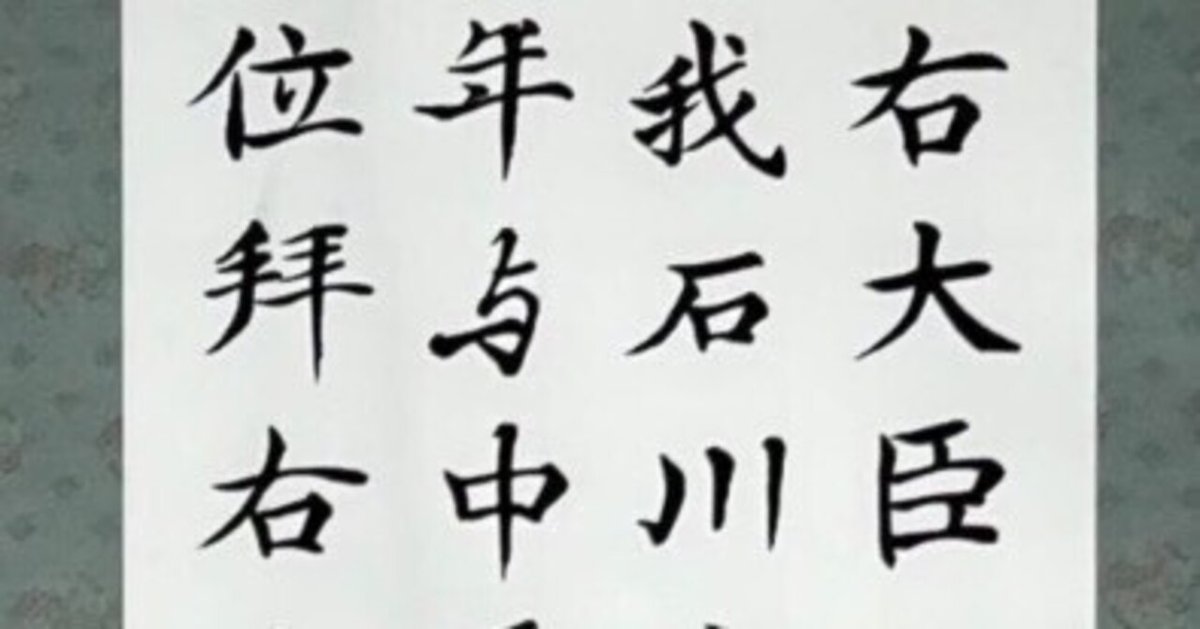 右大臣
我石川
年与中
位拜右